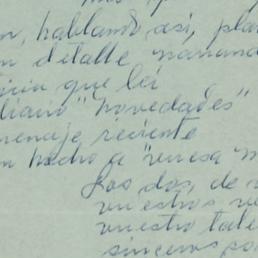 n, hablando así, pla
n detalle narrand
que lei
diario "Novedades"
menaje reciente
n hecho a "vuesa m
Los dos, de
vuestros ve
vuestro tale
sinceros po